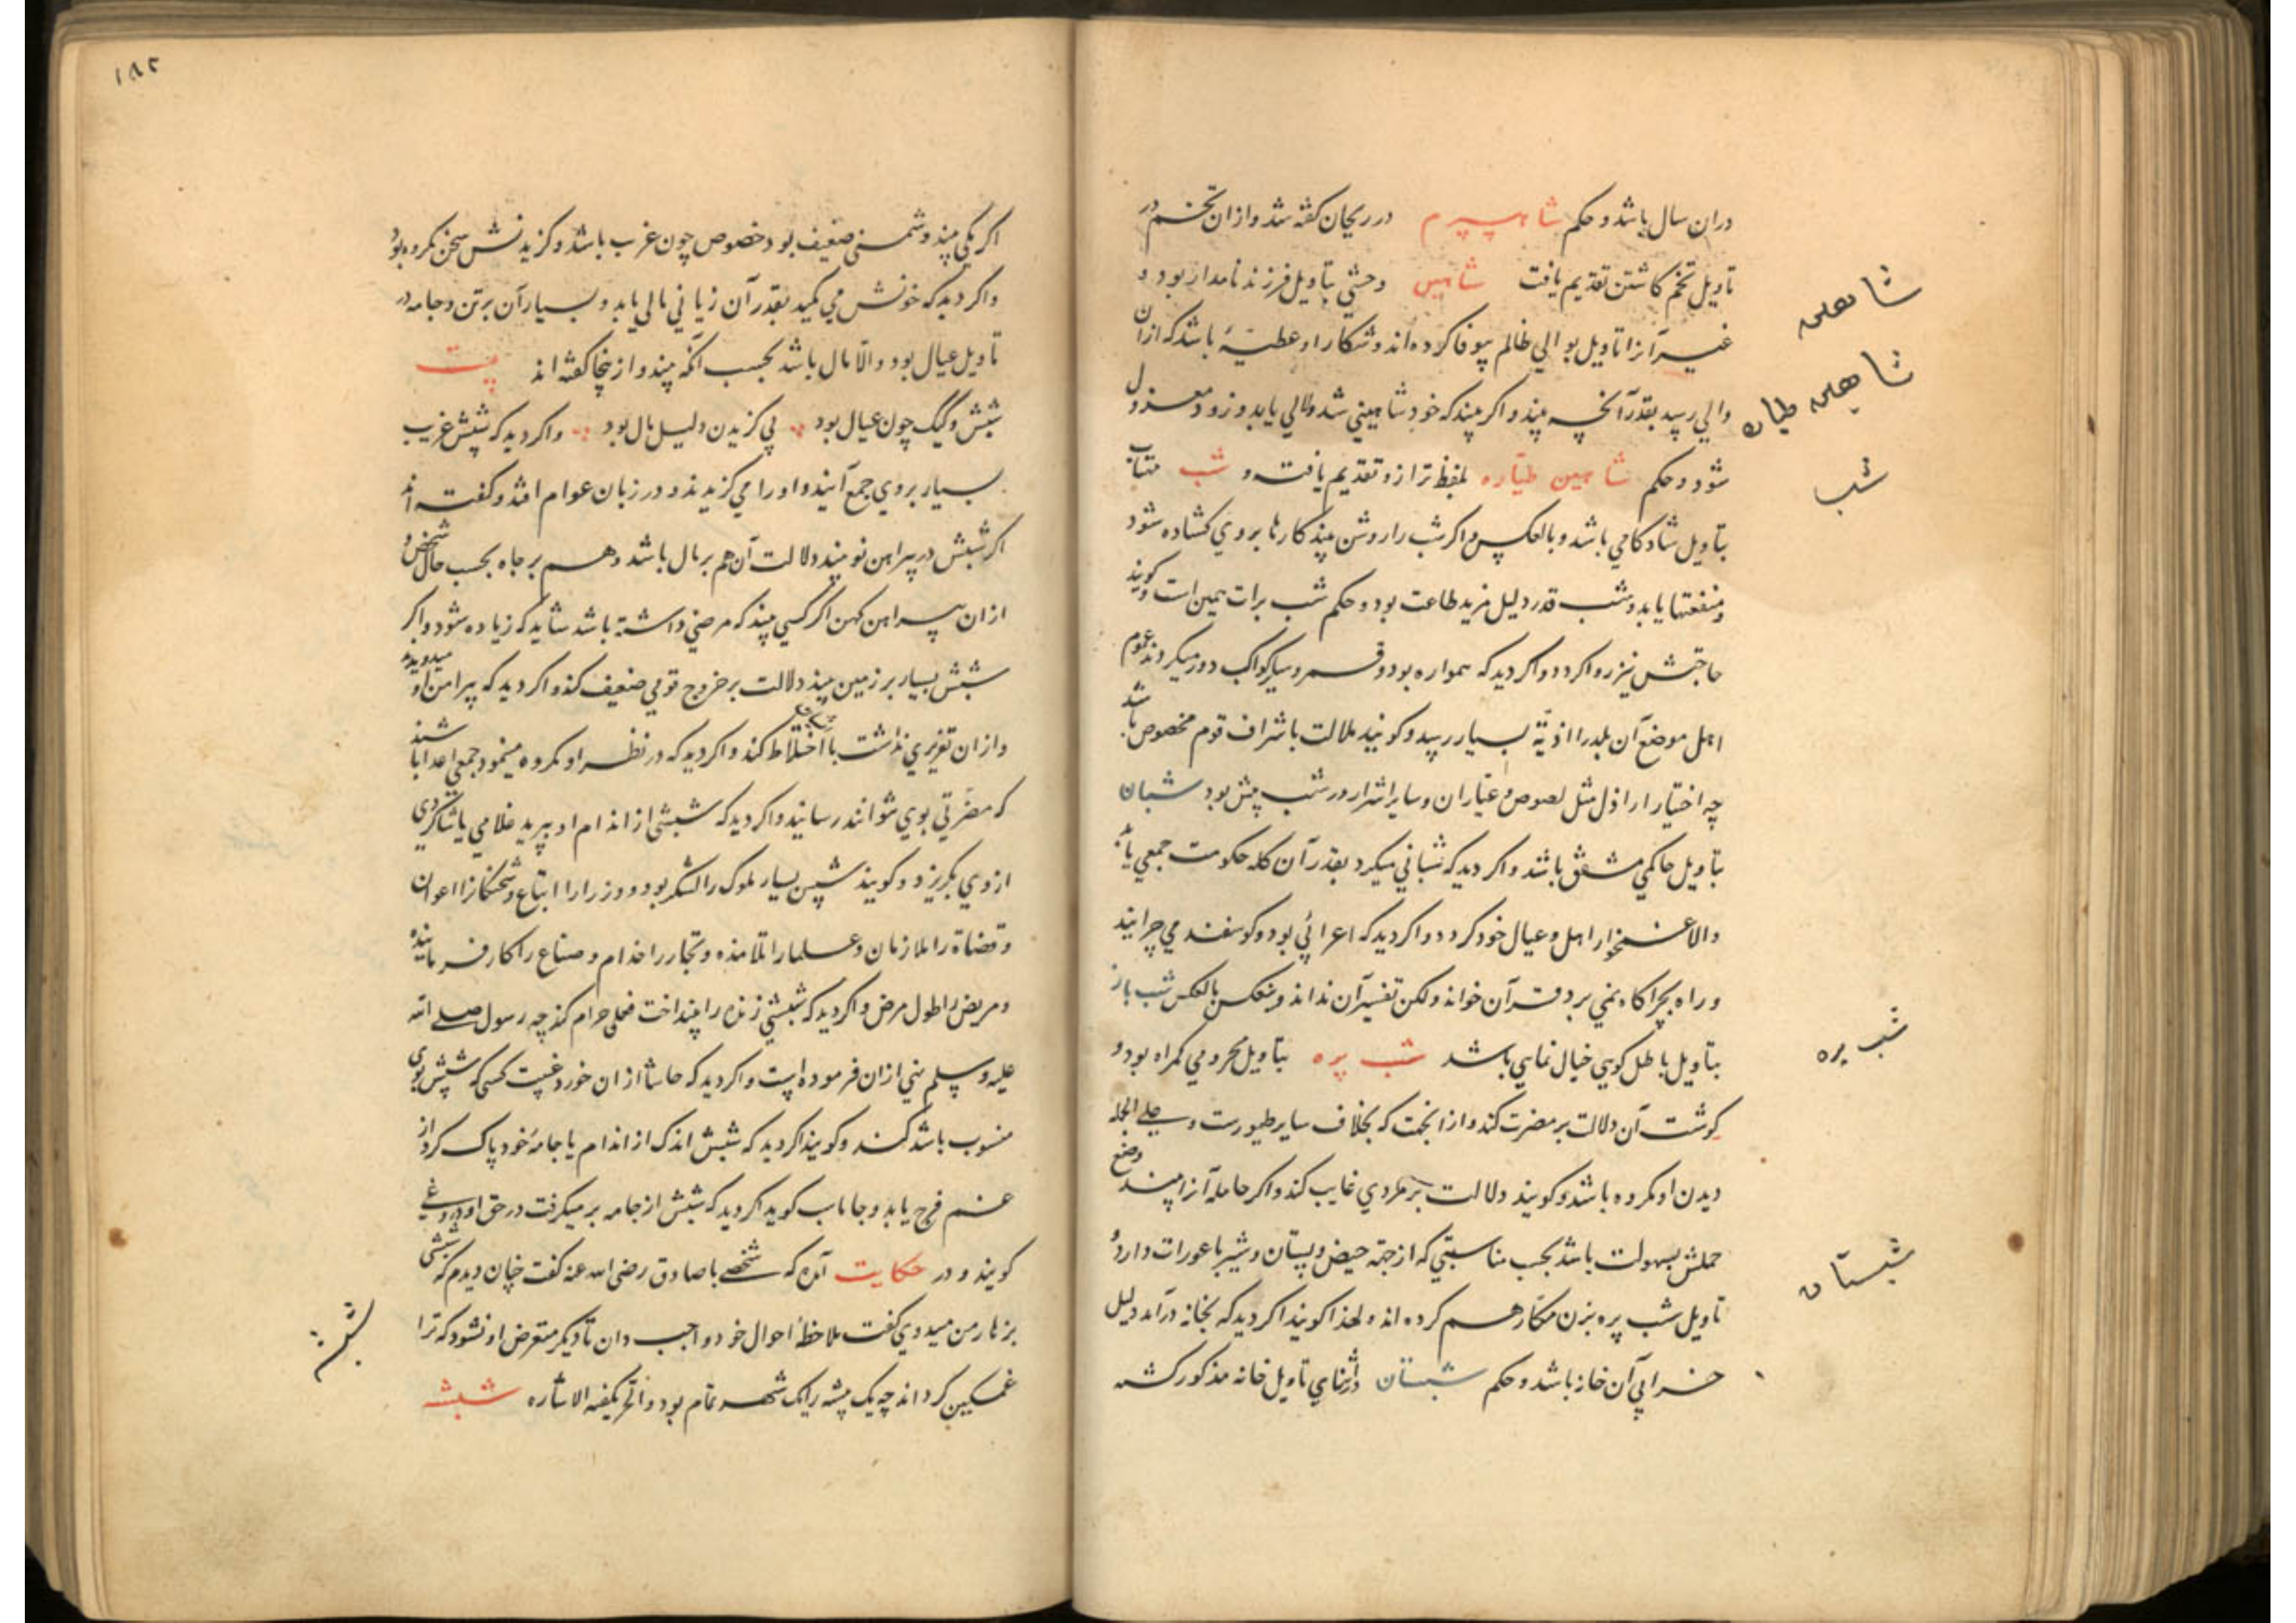 دران سال باشد و حکم شاهسپرم در ریحان کفته شد و ازان تخم در
تاویل تخم کاشتن تقدیم یافت شاهین وحشی بتاویل فرزند نامدار بود و
غیر آنرا تاویل بوالی ظالم بیوفا کرده اند و شکار او عطیهٔ باشد که ازان
والی رسد بقدر آنچه بیند و اکر بیند که خود شاهینی شد ولایی یابد و زود معزول
شود و حکم شاهین طیاره بلفظ ترازو تقدیم یافت و شب
بتاویل شادکامی باشد و بالعکس و اکر شب را روشن بیند کارها بروی کشاده شود
و منفعتها یابد و شب قدر دلیل مزید طاعت بود و حکم شب برات همین است و کویند
حاجتش نیز روا کردد و اکر دید که همواره بود و قمر و سایر کواکب دور میکردند عموم
اهل موضع آن بلد را اذیة بسیار رسد و کویند ملالت باشراف قوم مخصوص باشد
چه اختیار اراذل مثل لصوص و عیاران و سایر اشرار در شب بیش بود شبان
بتاویل حاکمی مشفق باشد و اکر دید که شبانی میکرد بقدر آن کله حکومت جمعی یابد
والا غمخوار اهل و عیال خود کردد و اکر دید که اعرابی بود و کوسفند می چرانید
و راه بچراکاه نمی برد قرآن خواند ولکن تفسیر آن نداند و بالعکس شب باز
بتاویل باطل کویی خیال نمایی باشد شب پره بتاویل محرومی کمراه بود و
کوشت آن دلالت بر مضرت کند و ازانجهت که بخلاف سایر طیورست و علی الجمله
دیدن او مکروه باشد و کویند دلالت بر مردی غایب کند و اکر حامله آنرا بیند وضع
حملش بسهولت باشد بحسب مناسبتی که از جهة حیض و پستان و شیر با عورات دارد و
تاویل شب پره بزن مکار هم کرده اند و لهذا کویند اکر دید که بخانه درآمد دلیل
خرابی آن خانه باشد و حکم شبستان در اثنای تاویل خانه مذکور کشته
شاهین
شاهین طیاره
شب
شب پره
شبستان
۱۸۲
اکر یکی بیند دشمنی ضعیف بود خصوص چون غریب باشد و کزیدنش سخن مکروه بود
و اکر دید که خونش می مکید بقدر آن زیانی مالی یابد و بسیار آن بر تن و جامه در
تاویل عیال بود والا مال باشد بحسب آنکه بیند و ازینجا کفته اند بیت
شپش و کیک چون عیال بود بی کزیدن دلیل مال بود و اکر دید که شپش غریب
بسیار بروی جمع آیند و او را می کزیدند در زبان عوام افتد و کفته اند
اکر شپش در پیراهن نو بیند دلالت آن هم بر مال باشد و هم بر جاه بحسب حال شخص و
ازان پیراهن کهن اکر کسی بیند که مرضی داشته باشد شاید که زیاده شود و اکر
شپش بسیار بر زمین بیند دلالت بر خروج قومی ضعیف کند و اکر دید که پیرامن او میدویدند
و ازان تغیری نداشت با اختلاط کند و اکر دید که در نظر او مکروه مینمود جمعی اعدا باشند
که مضرتی بوی نتوانند رسانید و اکر دید که شپشی از اندام او بپرید غلامی یا شاکردی
ازوی بکریزد و کویند شپش بسیار ملوک را لشکر بود و وزرا را اتباع و شحنکانرا اعوان
و قضاة را ملازمان و علما را تلامذه و تجار را خدام و صناع را کارفرماینده
و مریض را طول مرض و اکر دید که شپشی زنده را بینداخت فعلی حرام کند چه رسول صلی الله
علیه وسلم نهی ازان فرموده است و اکر دید که حاشا ازان خورد غیبت کسی که شپش بوی
منسوب باشد کند و کویند اکر دید که شپش اندک از اندام یا جامهٔ خود پاک کرد از
غم فرج یابد و جاماسب کوید اکر دید که شپش از جامه برمیکرفت در حق او دروغی
کویند و در حکایت آمده که شخصی با صادق رضی الله عنه کفت چنان دیدم که شپشی
بزهار من میدوید کفت ملاحظهٔ احوال خود واجب دان تا دیکر متعرض او نشود که ترا
غمکین کرداند چه یک یک شهر تمام بود و الحر یکفیه الاشاره شپشه
شپش